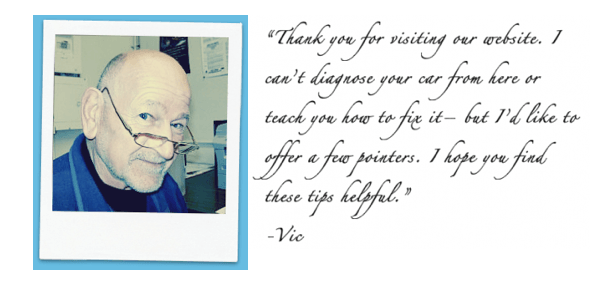 “Thank you for visiting our website. I
can’t diagnose your car from here or
teach you how to fix it– but I’d like to
offer a few pointers. I hope you find
these tips helpful.”
-Vic